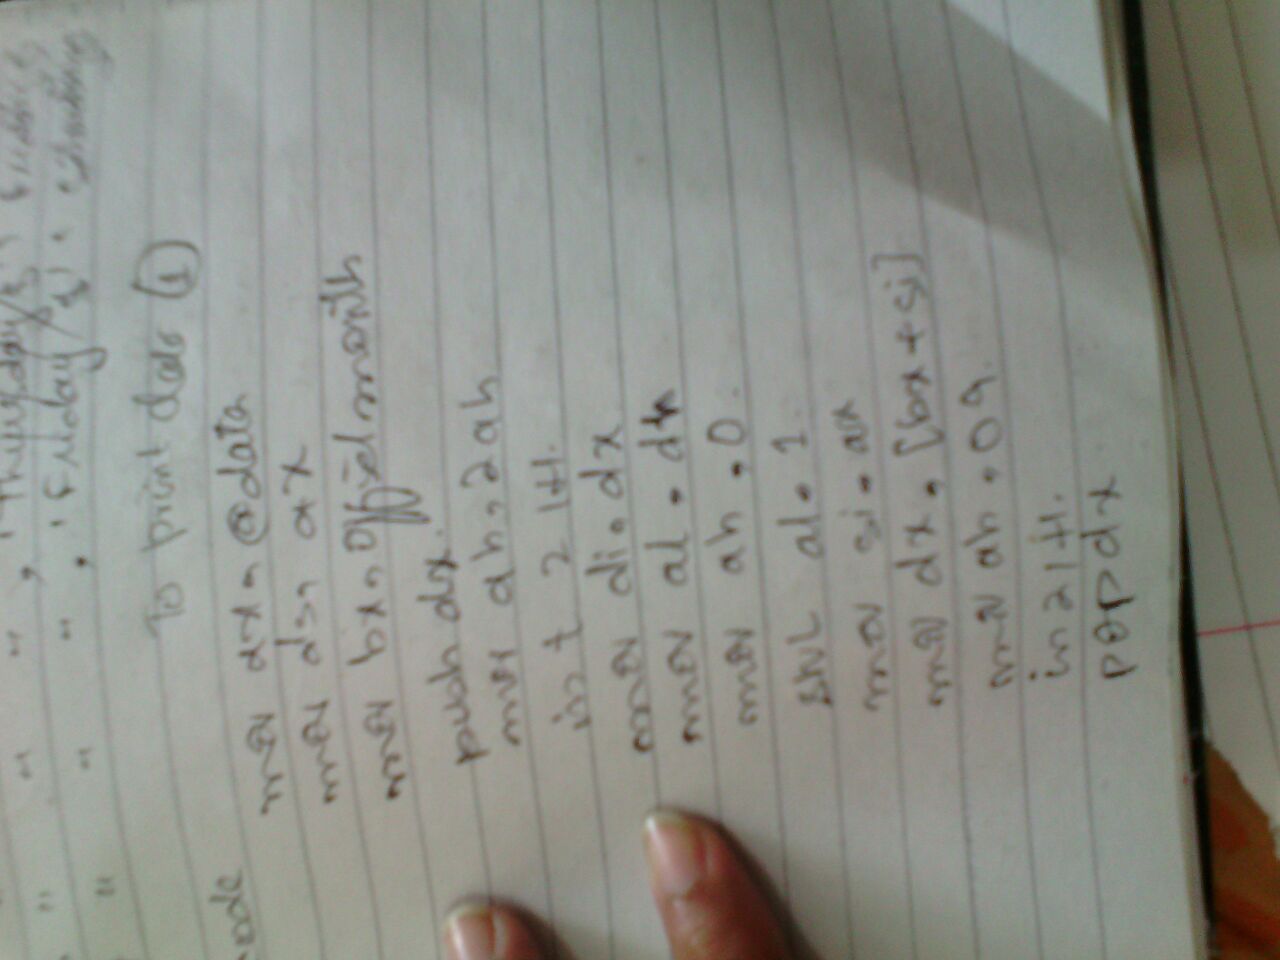 " " " , "Thursday/$", 
" " " , "Friday/$",
To print date (1)
code
mov ax, @data
mov ds, ax
mov bx, Offset month
push dx.
mov ah, 2ah
int 21H.
mov di, dx
mov al, dh
mov ah, 0.
shl al, 1.
mov si, ax
mov dx, [bx+si]
mov ah, 09.
in 21H.
pop dx